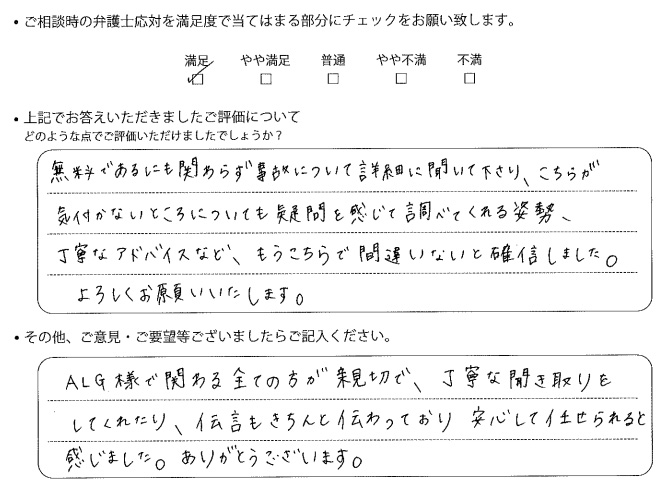 ・ご相談時の弁護士応対を満足度で当てはまる部分にチェックをお願い致します。
満足 やや満足 普通 やや不満 不満
・上記でお答えいただきましたご評価について
どのような点でご評価いただけましたでしょうか？
無料であるにも関わらず事故について詳細に聞いて下さり、こちらが
気付かないところについても疑問を感じて調べてくれる姿勢、
丁寧なアドバイスなど、もうこちらで間違いないと確信しました。
よろしくお願いいたします。
・その他、ご意見・ご要望等ございましたらご記入ください。
ALG様で関わる全ての方が親切で、丁寧な聞き取りを
してくれたり、伝言もきちんと伝わっており 安心して任せられると
感じました。ありがとうございます。